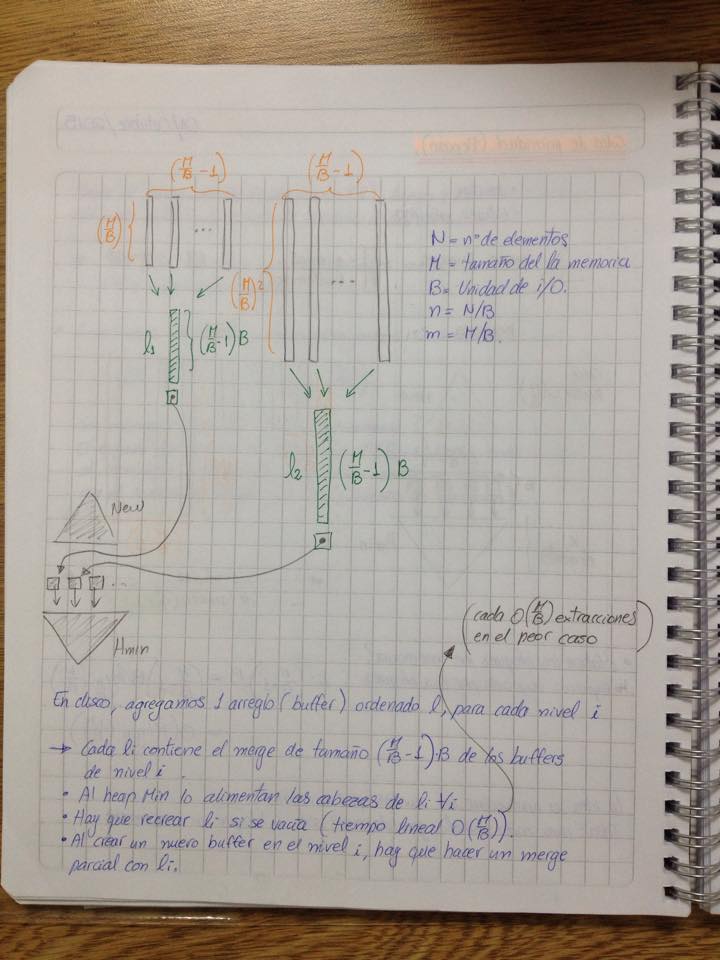 (M/B - 1)
(M/B - 1)
(M/B)
(M/B)²
N = nº de elementos
M = tamaño del la memoria
B = Unidad de i/O.
n = N/B
m = M/B.
l1
(M/B - 1) B
l2
(M/B - 1) B
New
Hmin
(cada O(M/B) extracciones
en el peor caso)
En disco, agregamos 1 arreglo (buffer) ordenado li para cada nivel i
→ Cada li contiene el merge de tamaño (M/B - 1)·B de los buffers
de nivel i.
• Al heap Min lo alimentan las cabezas de li ∀i
• Hay que recrear li si se vacía (tiempo lineal O(M/B)).
• Al crear un nuevo buffer en el nivel i, hay que hacer un merge
parcial con li.